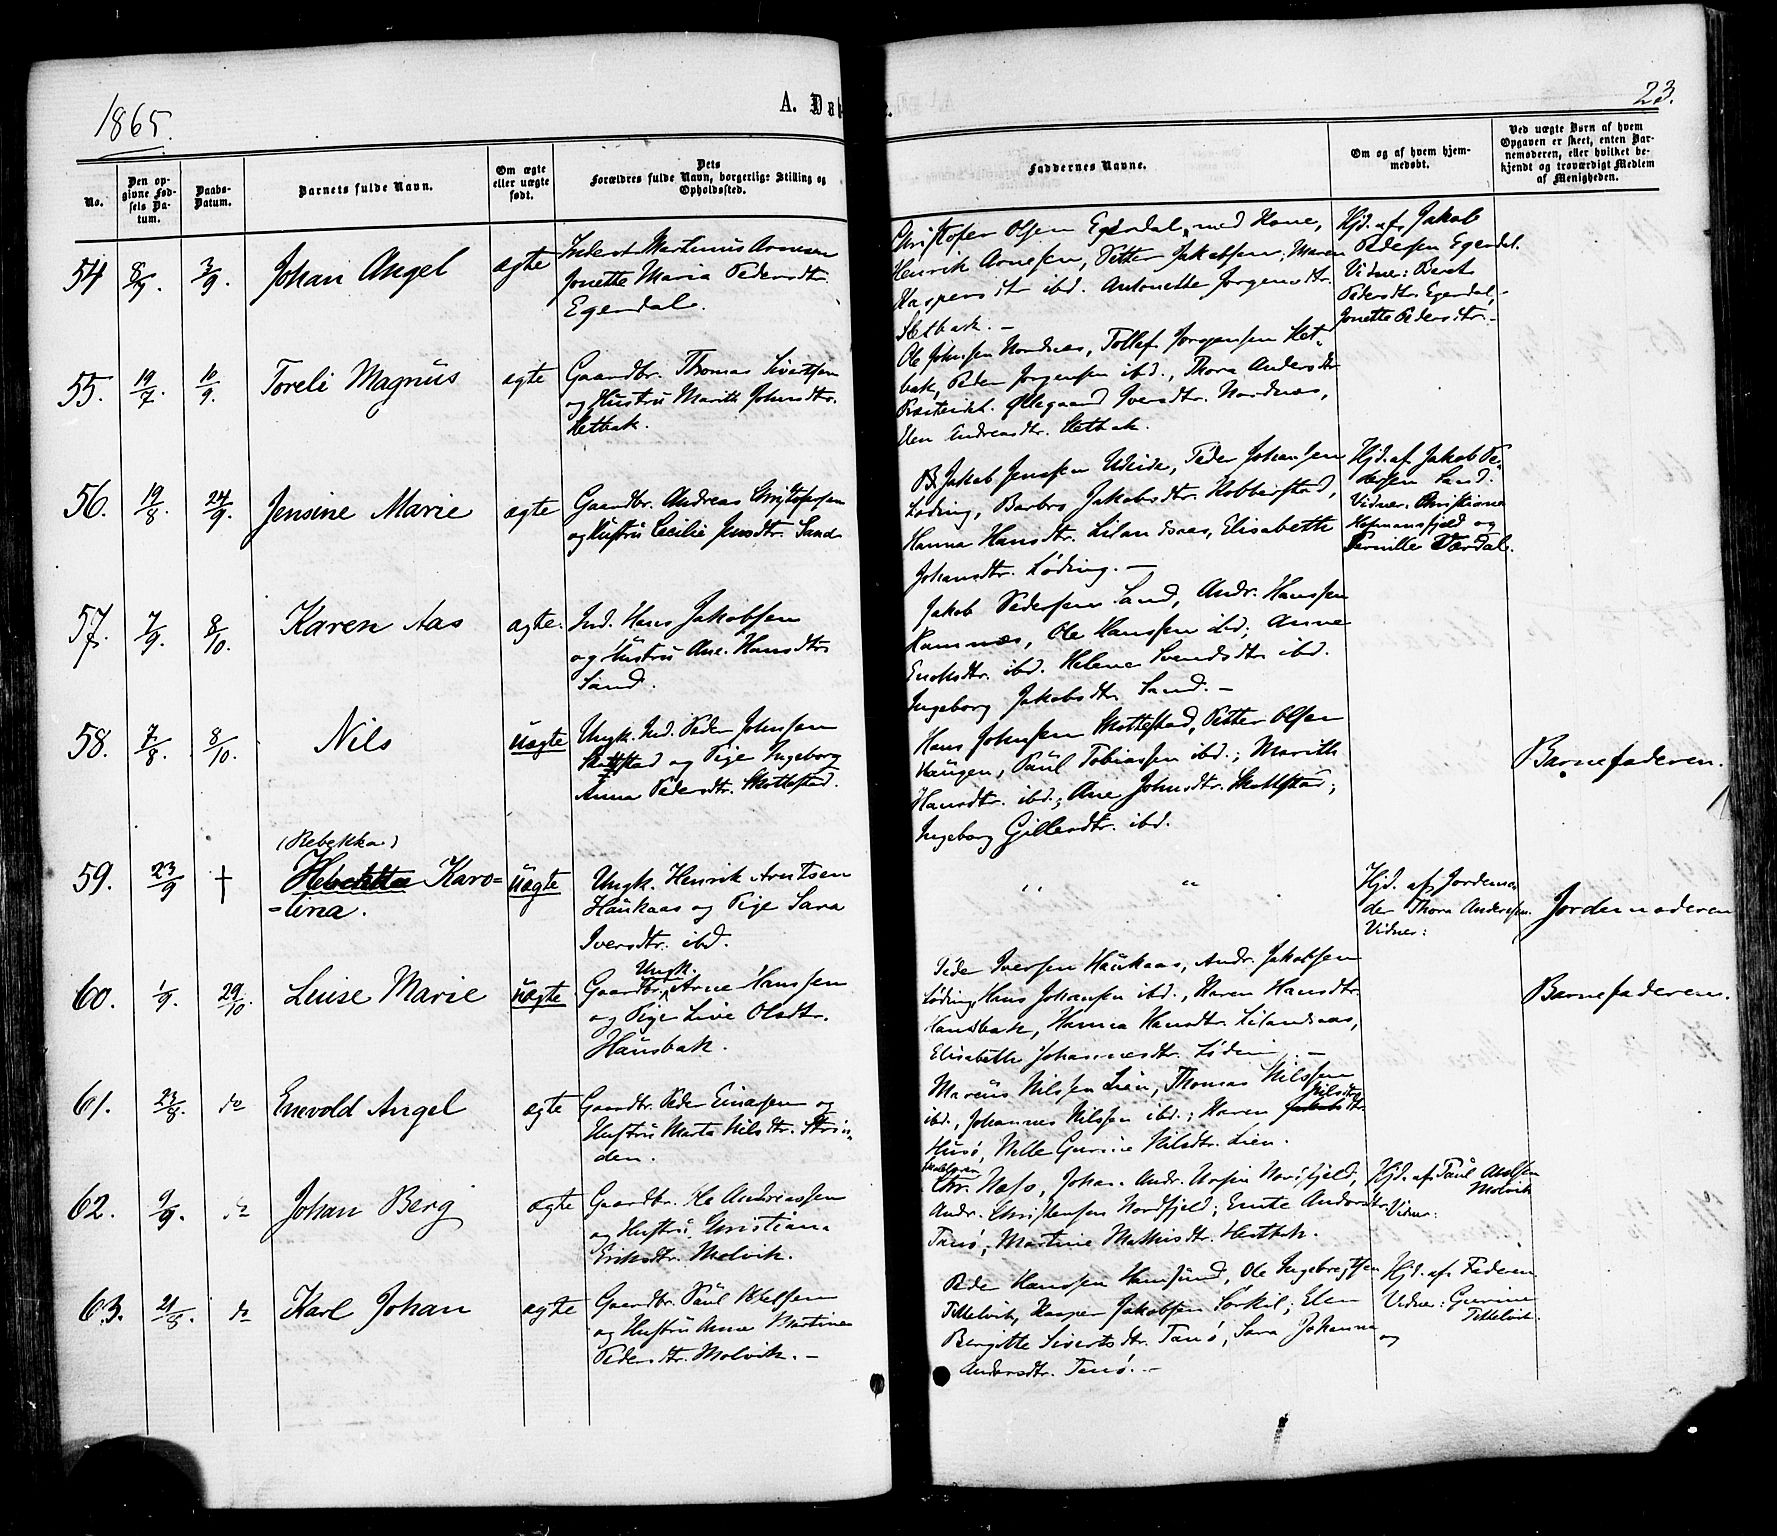 1865.
A. Døb
23.
No.
Den opgivne Fødsels Datum.
Daabs-Datum.
Barnets fulde Navn.
Om ægte eller uægte født.
Dets Forældres fulde Navn, borgerlige Stilling og Opholdssted.
Faddernes Navne.
Om og af hvem hjemmedøbt.
Ved uægte Børn af hvem Opgaven er skeet, enten Barnemoderen, eller hvilket bekjendt og troværdigt Medlem af Menigheden.
54 8/7 3/9. Johan Angel ægte
Martinus Arnesen
Jonette Maria Pedersdtr.
Egerdal.
Christofer Olsen Egerdal, med Kone,
Henrik Arnesen, Petter Jakobsen, Maren
Kaspersdtr ibd. Antonette Jørgensdtr.
Hjd. af Jakob
Pedersen Egerdal.
Vidner: Beret
Pedersdtr. Egerdal,
Jonette Pedersdtr.
55. 19/7. 10/9. Toreli Magnus ægte
Gaardbr. Thomas Sivertsen
og Hustru Marith Johnsdtr.
Hetbak.
Ole Johnsen Nordnes, Tollef Jørgensen Het-
bak, Peder Jørgensen ibd., Thora Andersdtr
Præsteidet. Ellegaard Iversdtr. Nordnæs,
Elen Andreasdtr. Hetbak.
56. 19/8. 24/9. Jensine Marie ægte
Gaardbr. Andreas Christofersen
og Hustru Cecilie Jensdtr. Sand
Jakob Jenssen Udeide, Peder Johansen
Løding, Barbro Jakobsdtr. Kobberstad,
Hanna Hansdtr. Lilandsaas, Elisabeth
Johansdtr. Løding. –
Hjd. af Jakob Pe-
dersen Sand.
Vidner: Christiane
Hofmansfjeld og
Pernille Værdal.
57. 7/9. 8/10. Karen Aas ægte.
Ind. Hans Jakobsen
og Hustru Ane Hansdtr
Sand.
Jakob Pedersen Sand, Andr. Hanssen
Ramnæs, Ole Hanssen ibd; Anne
Enoksdtr. ibd. Helena Svendsdtr ibd.
Ingeborg Jakobsdtr Sand. –
58. 7/8. 8/10. Nils uægte
Ungk. Ind. Peder Johnssen
Skottstad og Pige Ingeborg
Anna Pedersdtr. Skottestad.
Hans Johnssen Skottestad, Petter Olsen
Haugen, Paul Tobiassen ibd.; Marith
Hansdtr. ibd.; Ane Johnsdtr. Skottestad;
Ingeborg Gillesdtr. ibd.
Barnefaderen.
(Rebekka)
59. 23/9 † Karo-
-lina. uægte
Ungk. Henrik Arntsen
Haukaas og Pige Sara
Iversdtr. ibd.
" "
Hjd. af Jordemo-
der Thora Andersen.
Vidner:
Jordemoderen
60. 1/9. 29/10. Luise Marie uægte
Ungk.
Gaardbr. Arne Hanssen
og Pige Live Olsdtr.
Hansbak.
Peder Iversen Haukaas, Andr. Jakobsen
Løding, Hans Johansen ibd., Karen Hansdtr.
Hansbak, Hanna Hansdtr. Lilandsaas,
Elisabeth Johannesdtr. Løding. –
Barnefaderen.
61. 23/8. do Enevold Angel ægte
Gaardbr. Peder Einarsen og
Hustru Marta Nilsdtr. Strin-
den.
Marcus Nilssen Lien, Thomas Nilssen
Nilsdtr
ibd., Johannes Nilssen ibd.; Karen Jakobsdtr
Husø, Nelle Gurine Nilsdtr. Lien.
62. 9/9. do Johan Berg ægte
Gaardbr. Ole Andreassen
og Hustru Christiana
Eriksdtr. Molvik.
Chr. Næss, Johan Andr. Nordfjeld,
Andr. Christensen Nordfjeld; Ernte Andersdtr.
Tenø, Martine Mathisdtr. Hestbak.
Hjd. af Paul Axelsen
Molvik
Vidner:
63. 21/8. do Karl Johan ægte
Gaardbr. Paul Axelsen
og Hustru Anne Martine
Pedersdtr. Molvik. –
Peder Hanssen Hamsund, Ole Ingebrigtsen
Tittelvik, Kasper Jakobsen Sørkil; Elen
Bergitte Sivertsdtr. Tenø, Sara Johanna
Andersdtr. Tenø. –
Hjd. af Faderen.
Vidner: Gurine
Tittelvik.
og